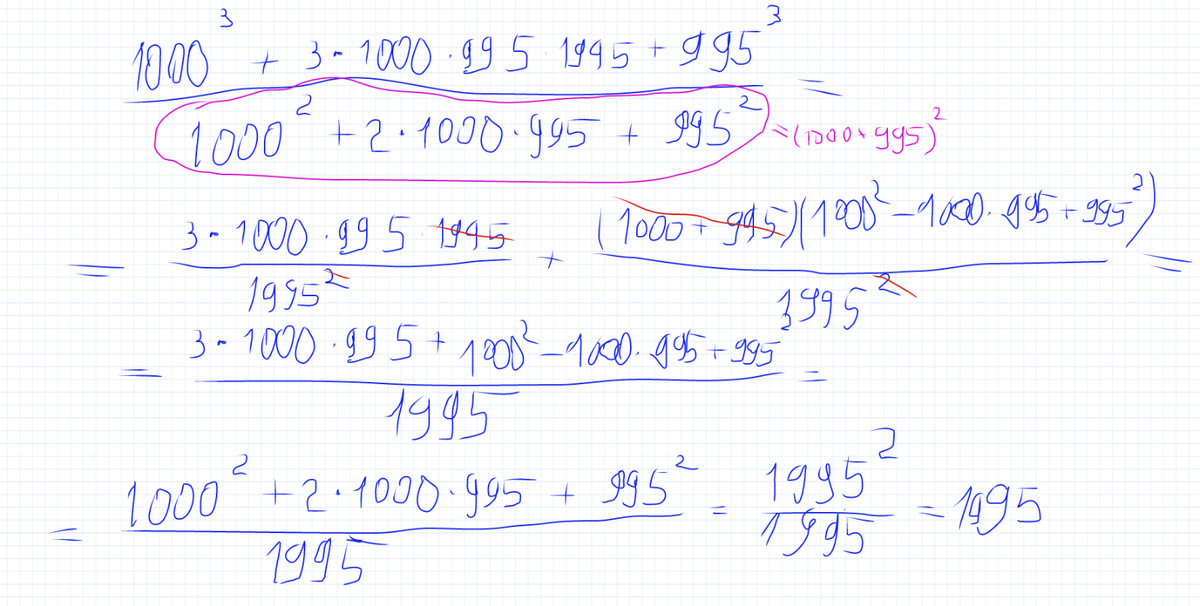 (1000³ + 3·1000·995·1995 + 995³)/(1000² + 2·1000·995 + 995²) =
=(1000+995)²
= (3·1000·995·1995)/1995² + ((1000+995)(1000²-1000·995+995²))/1995² =
= (3·1000·995+1000²-1000·995+995²)/1995 =
= (1000²+2·1000·995+995²)/1995 = 1995²/1995 = 1995